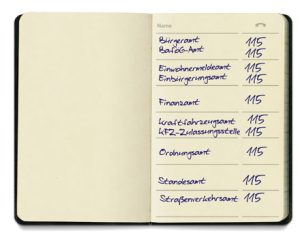 Name
Bürgeramt 115
BaföG-Amt 115
Einwohnermeldeamt 115
Einbürgerungsamt 115
Finanzamt 115
Kraftfahrzeugamt 115
KFZ-Zulassungsstelle 115
Ordnungsamt 115
Standesamt 115
Straßenverkehrsamt 115